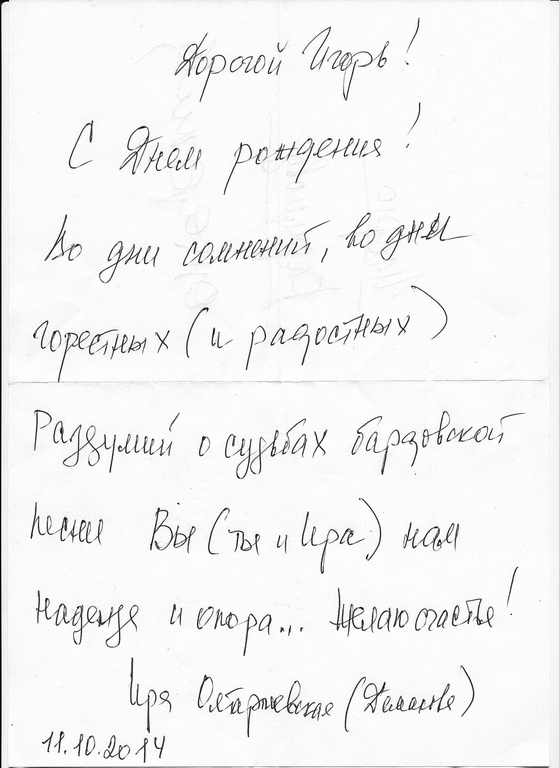 Дорогой Игорь!
С Днем рождения!
Во дни сомнений, во дни
горестных (и радостных)
Раздумий о судьбах бардовской
песни Вы (ты и Ира) нам
надежда и опора... Желаю счастья!
Ира
11.10.2014